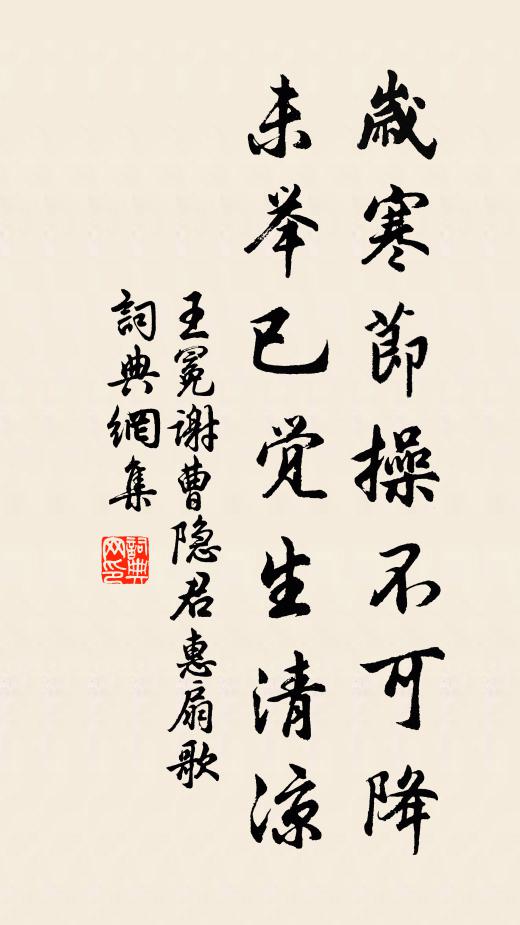 歲寒節操不可降
未举已觉生清凉
王冕谢曹隐君惠扇歌
詞典網集
詞典网印